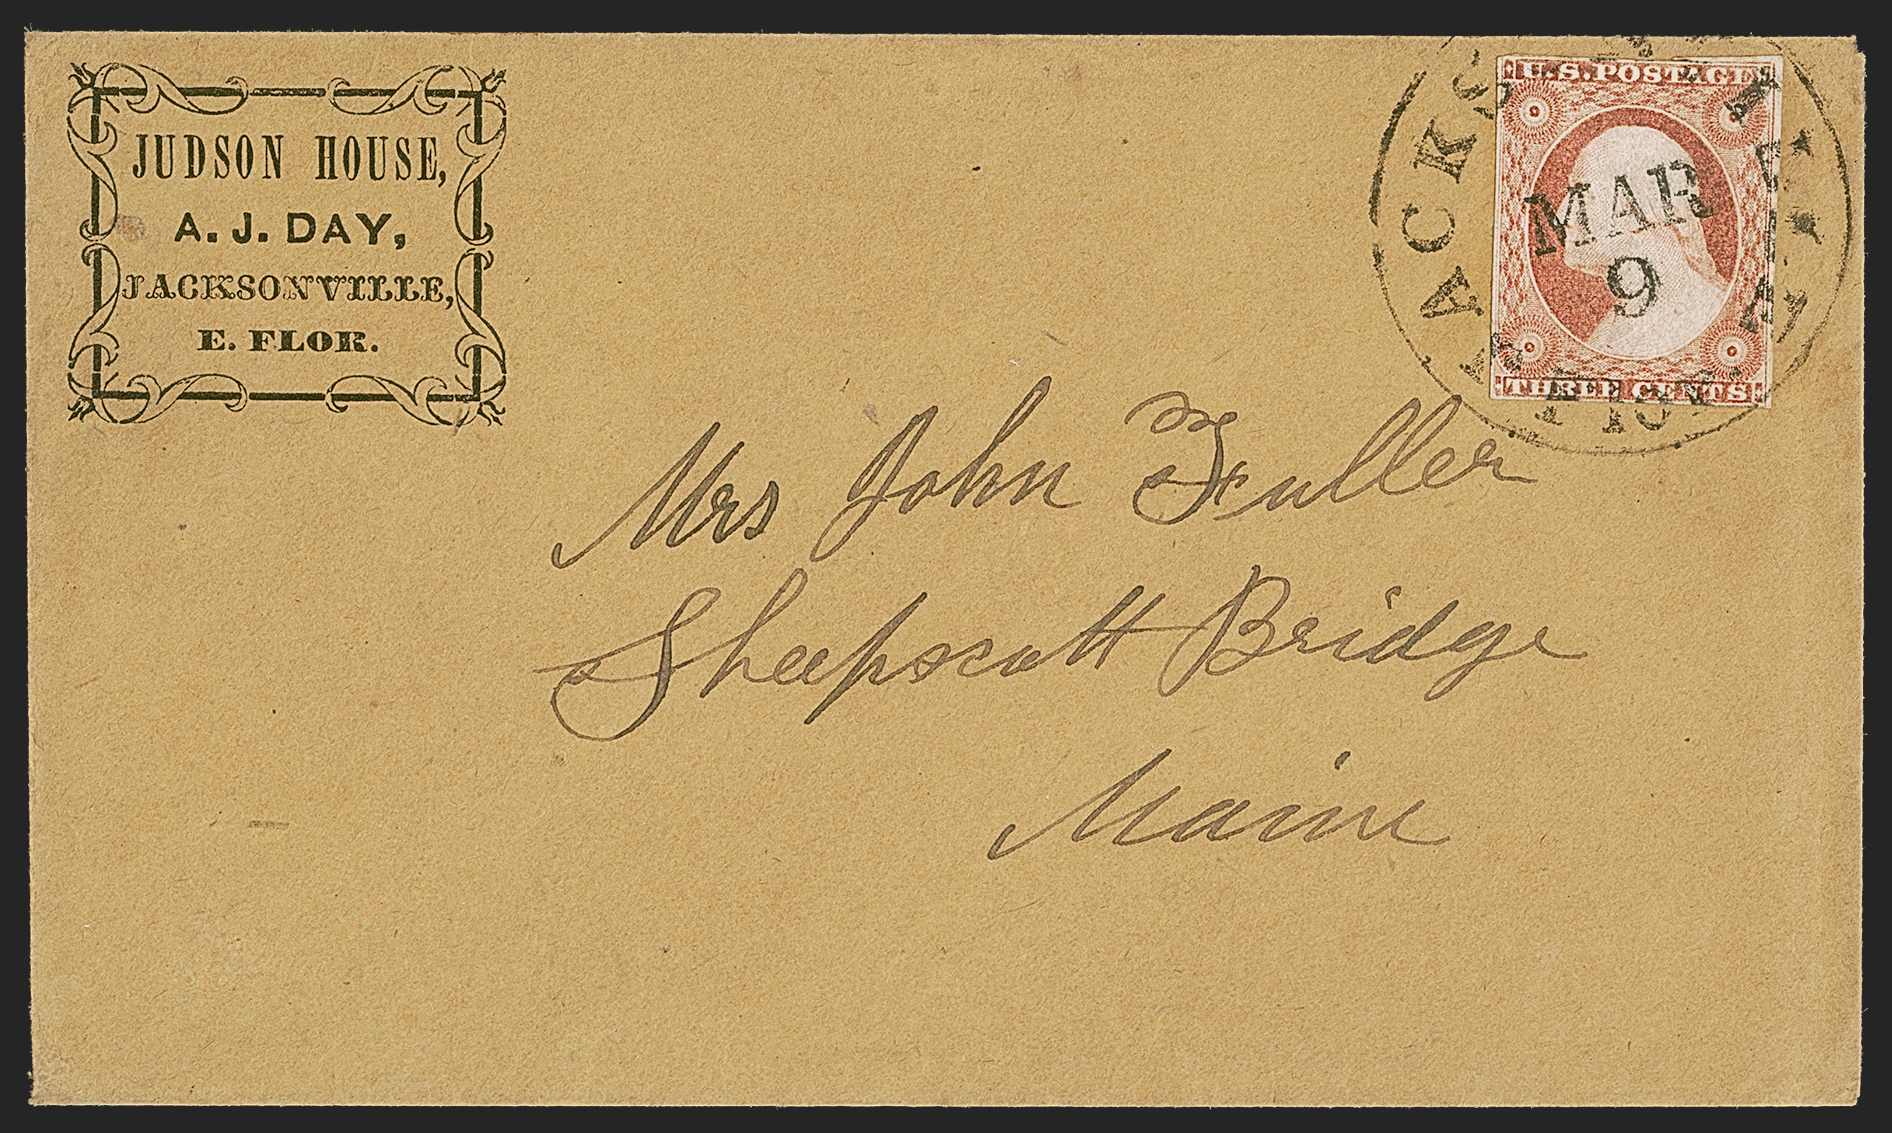 JUDSON HOUSE,
A. J. DAY,
JACKSONVILLE,
E. FLOR.
U.S. POSTAGE
MAR
9
THREE CENTS
Mrs John Fuller
Sheepscott Bridge
Maine